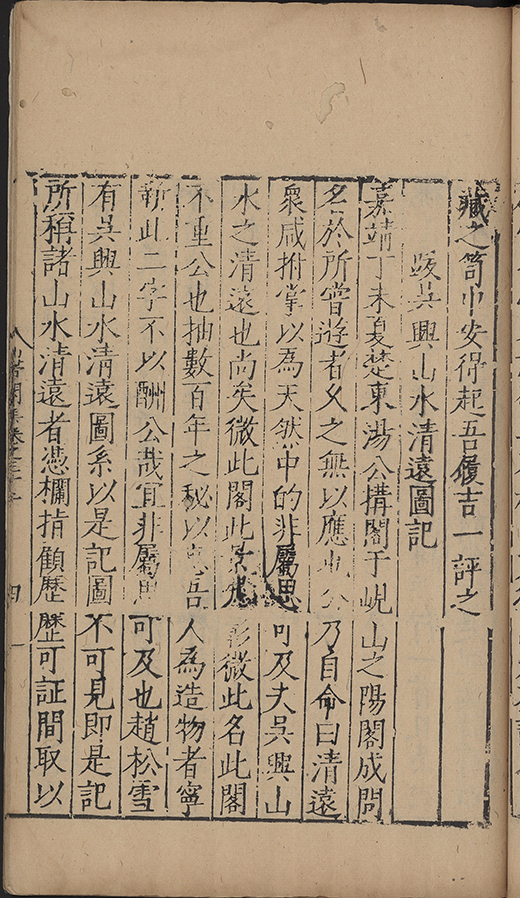 藏之笥中安得起吾履吉一評之
跋吳興山水清遠圖記
嘉靖丁未夏楚東湯公搆閣于峴山之陽閣成問
名於所嘗遊者久之無以應也公乃自命曰清遠
衆咸拊掌以為天然中的非屬思可及夫吳興山
水之清遠也尚矣微此閣此景微此名此閣
不重公也抽數百年之秘以吾人為造物者寧
靳此二字不以酬公哉宜非屬思可及也趙松雪
有吳興山水清遠圖系以是記圖不可見即是記
所稱諸山水清遠者憑欄指顧歷歷可証間取以
四